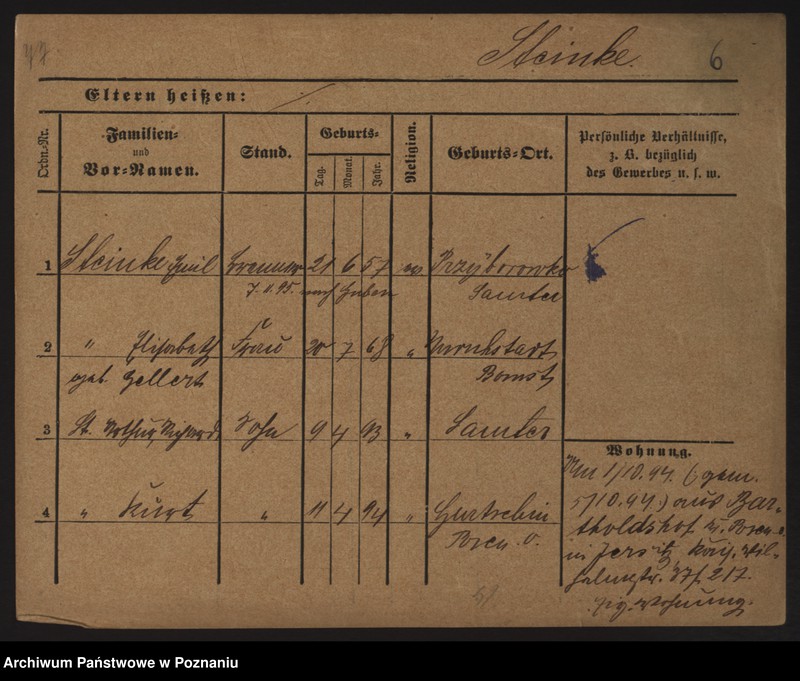 47
Steinke.
6
Eltern heißen:
Ordn.-Nr.
Familien-
und
Vor-Namen.
Stand.
Geburts-
Tag.
Monat.
Jahr.
Religion.
Geburts-Ort.
Persönliche Verhältnisse,
z. B. bezüglich
des Gewerbes u. s. w.
1 Steinke Emil Brenner 21 6 57 ev Przyborowko
7.11.95. nach Guben Samter
2 " Elisabeth Frau 20 7 68 "
geb. Gellert Bomst
3 St. Arthur, Richard Sohn 9 4 93 " Samter
4 " Kurt " 11 4 94 "
Posen. O.
Wohnung.
1/10.94. (gem.
5/10.94.) aus Bar-
tholdshof Posen O.
in Jersitz, Kais. Wil-
helmstr. 37
Wohnung.
Archiwum Państwowe w Poznaniu